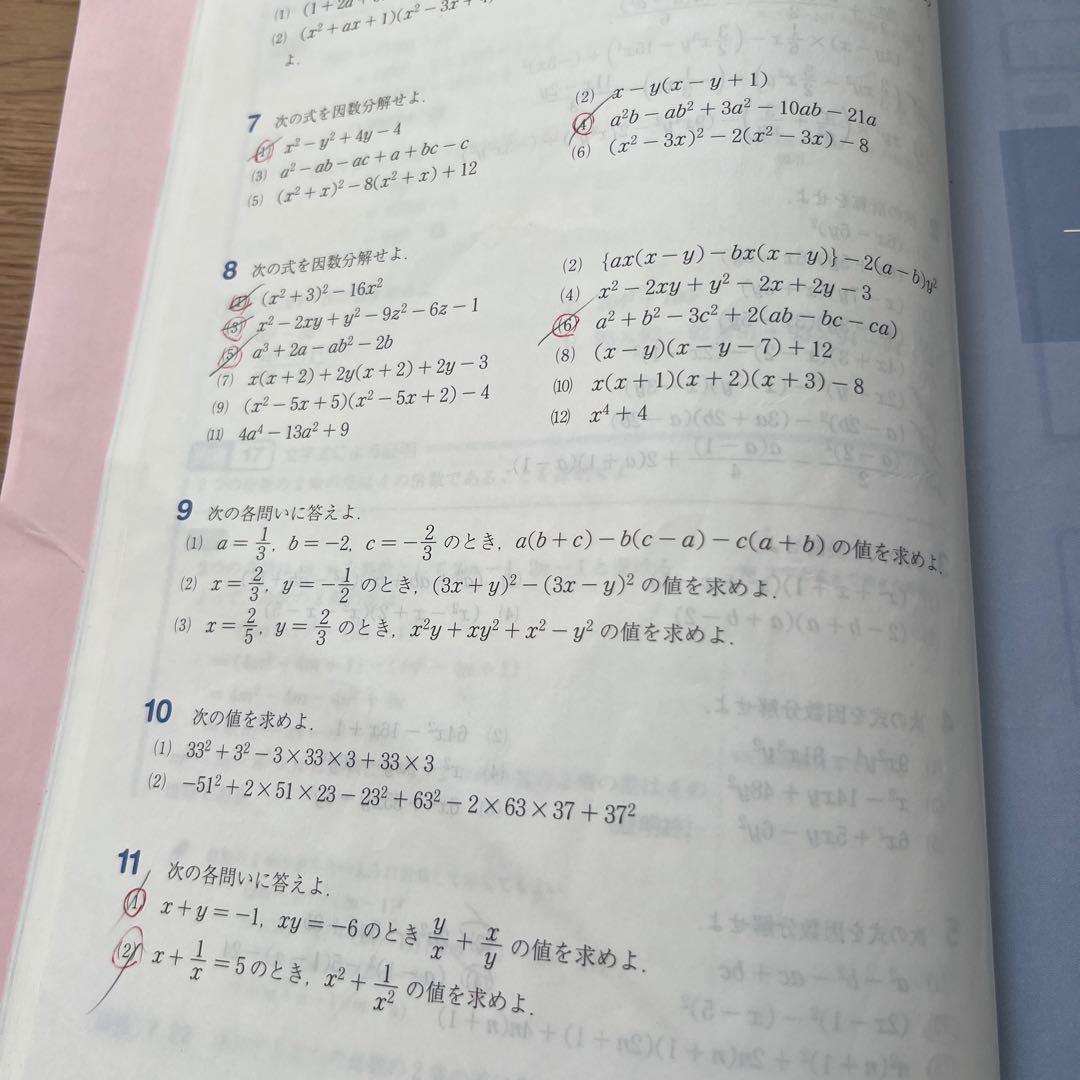 (1) (1+2a
(2) (x²+ax+1)(x²−3x+
よ.
7 次の式を因数分解せよ.
(1) x²−y²+4y−4
(2) x−y(x−y+1)
(3) a²−ab−ac+a+bc−c
(4) a²b−ab²+3a²−10ab−21a
(5) (x²+x)²−8(x²+x)+12
(6) (x²−3x)²−2(x²−3x)−8
8 次の式を因数分解せよ.
(1) (x²+3)²−16x²
(2) {ax(x−y)−bx(x−y)}−2(a−b)y²
(3) x²−2xy+y²−9z²−6z−1
(4) x²−2xy+y²−2x+2y−3
(5) a³+2a−ab²−2b
(6) a²+b²−3c²+2(ab−bc−ca)
(7) x(x+2)+2y(x+2)+2y−3
(8) (x−y)(x−y−7)+12
(9) (x²−5x+5)(x²−5x+2)−4
(10) x(x+1)(x+2)(x+3)−8
(11) 4a⁴−13a²+9
(12) x⁴+4
9 次の各問いに答えよ.
(1) a=1/3, b=−2, c=−2/3 のとき, a(b+c)−b(c−a)−c(a+b) の値を求めよ.
(2) x=2/3, y=−1/2 のとき, (3x+y)²−(3x−y)² の値を求めよ.
(3) x=2/5, y=2/3 のとき, x²y+xy²+x²−y² の値を求めよ.
10 次の値を求めよ.
(1) 33²+3²−3×33×3+33×3
(2) −51²+2×51×23−23²+63²−2×63×37+37²
11 次の各問いに答えよ.
(1) x+y=−1, xy=−6のとき y/x+x/y の値を求めよ.
(2) x+1/x=5のとき, x²+1/x² の値を求めよ.